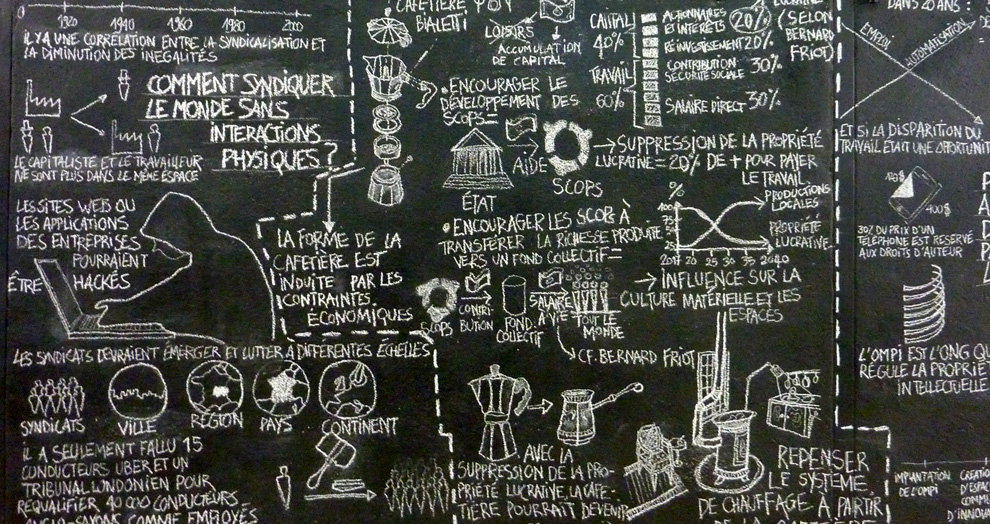 1920 1940 1960 1980 200
IL Y A UNE CORRÉLATION ENTRE LA SYNDICALISATION ET
LA DIMINUTION DES INÉGALITÉS
COMMENT SYNDIQUER
LE MONDE SANS
INTERACTIONS
PHYSIQUES ?
LE CAPITALISTE ET LE TRAVAILLEUR
NE SONT PLUS DANS LE MÊME ESPACE
LES SITES WEB OU
LES APPLICATIONS
DES ENTREPRISES
POURRAIENT
ÊTRE HACKÉS
LA FORME DE LA
CAFETIÈRE EST
INDUITE PAR LES
CONTRAINTES
ÉCONOMIQUES
LES SYNDICATS DEVRAIENT ÉMERGER ET LUTTER À DIFFÉRENTES ÉCHELLES
SYNDICATS VILLE RÉGION PAYS CONTINENT
IL A SEULEMENT FALLU 15
CONDUCTEURS UBER ET UN
TRIBUNAL LONDONIEN POUR
REQUALIFIER 40 000 CONDUCTEURS
ANGLO-SAXONS COMME EMPLOYÉS
CAFETIÈRE
BIALETTI
LOISIRS
ACCUMULATION
DE CAPITAL
CAPITAL
40%
TRAVAIL
60%
ACTIONNAIRES
ET INTÉRÊTS 20%
RÉINVESTISSEMENT 20%
CONTRIBUTION
SÉCURITÉ SOCIALE 30%
SALAIRE DIRECT 30%
LUCRATIVE
(SELON
BERNARD
FRIOT)
• ENCOURAGER LE
DÉVELOPPEMENT DES
SCOPS
ÉTAT
AIDE
SCOPS
→ SUPPRESSION DE LA PROPRIÉTÉ
LUCRATIVE = 20% DE + POUR PAYER
LE TRAVAIL
• ENCOURAGER LES SCOP À
TRANSFÉRER LA RICHESSE PRODUITE
VERS UN FOND COLLECTIF
%
100
75
50
25
2017 20 25 30 35 2040
PRODUCTIONS
LOCALES
PROPRIÉTÉ
LUCRATIVE
SCOPS
CONTRI-
BUTION
FOND
COLLECTIF
SALAIRE
À VIE
TOUT LE
MONDE
CF. BERNARD FRIOT
→ INFLUENCE SUR LA
CULTURE MATÉRIELLE ET LES
ESPACES
AVEC LA
SUPPRESSION DE LA PRO-
PRIÉTÉ LUCRATIVE, LA CAFE-
TIÈRE POURRAIT DEVENIR
REPENSER
LE SYSTÈME
DE CHAUFFAGE À PARTIR
DE LA CAFETIÈRE
DANS 20 ANS :
EMPLOI
AUTOMATISATION
ET SI LA DISPARITION DU
TRAVAIL ÉTAIT UNE OPPORTUNIT
400$
30% DU PRIX D'UN
TÉLÉPHONE EST RESERVÉ
AUX DROITS D'AUTEUR
L'OMPI EST L'ONG QU
RÉGULE LA PROPRIÉ
INTELLECTUELLE
IMPLANTATION
DE L'OMPI
CRÉATIO
D'ESPA
COMMU
D'INNOVA